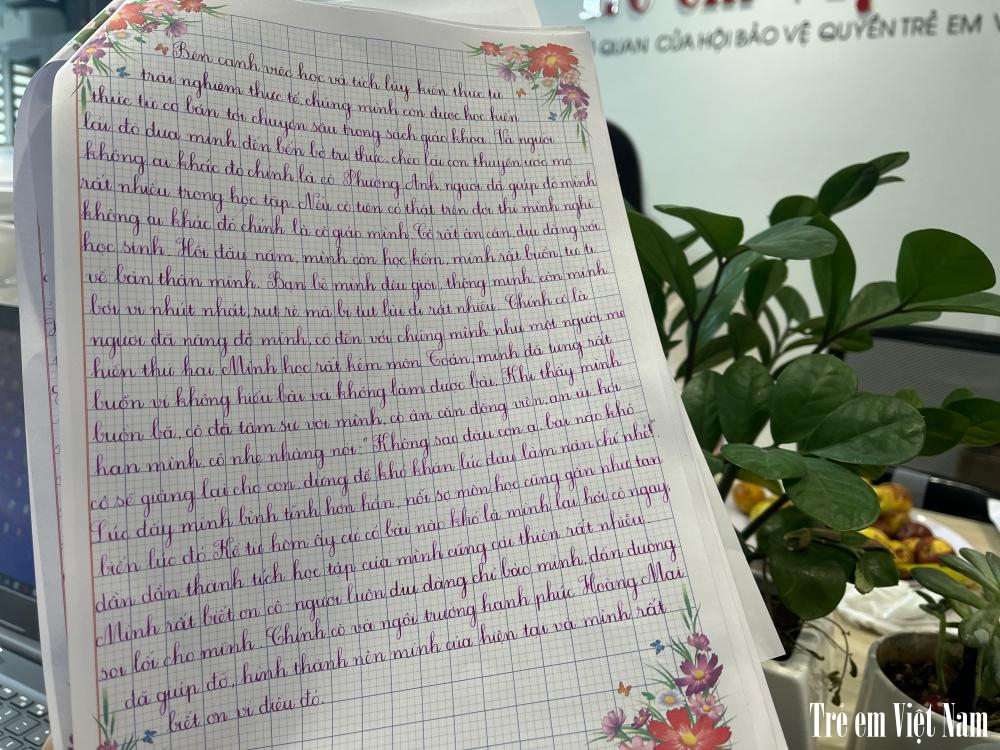 QUAN CỦA HỘI BẢO VỆ QUYỀN TRẺ EM V
Bên cạnh việc học và tích lũy kiến thức từ
trải nghiệm thực tế, chúng mình còn được học kiến
thức từ cơ bản tới chuyên sâu trong sách giáo khoa. Và người
lái đò đưa mình đến bến bờ tri thức, chèo lái con thuyền ước mơ
không ai khác đó chính là cô Phương Anh, người đã giúp đỡ mình
rất nhiều trong học tập. Nếu cô tiên có thật trên đời thì mình nghĩ
không ai khác đó chính là cô giáo mình. Cô rất ân cần, dịu dàng với
học sinh. Hồi đầu năm, mình còn học kém, mình rất buồn, tự ti
về bản thân mình. Bạn bè mình đều giỏi, thông minh, còn mình
bởi vì nhút nhát, rụt rè mà bị tụt lùi đi rất nhiều. Chính cô là
người đã nâng đỡ mình, cô đến với chúng mình như một người mẹ
hiền thứ hai. Mình học rất kém môn Toán, mình đã từng rất
buồn vì không hiểu bài và không làm được bài. Khi thấy mình
buồn bã, cô đã tâm sự với mình, cô ân cần động viên, an ủi, hỏi
han mình, cô nhẹ nhàng nói: "Không sao đâu con ạ, bài nào khó
cô sẽ giảng lại cho con, đừng để khó khăn lúc đầu làm nản chí nhé!".
Lúc đấy mình bình tĩnh hơn hẳn, nỗi sợ môn học cũng gần như tan
biến lúc đó. Kể từ hôm ấy cứ có bài nào khó là mình lại hỏi cô ngay,
dần dần thành tích học tập của mình cũng cải thiện rất nhiều.
Mình rất biết ơn cô - người luôn dịu dàng chỉ bảo mình, dẫn đường
soi lối cho mình. Chính cô và ngôi trường hạnh phúc Hoàng Mai
đã giúp đỡ, hình thành nên mình của hiện tại và mình rất
biết ơn vì điều đó.
Trẻ em Việt Nam